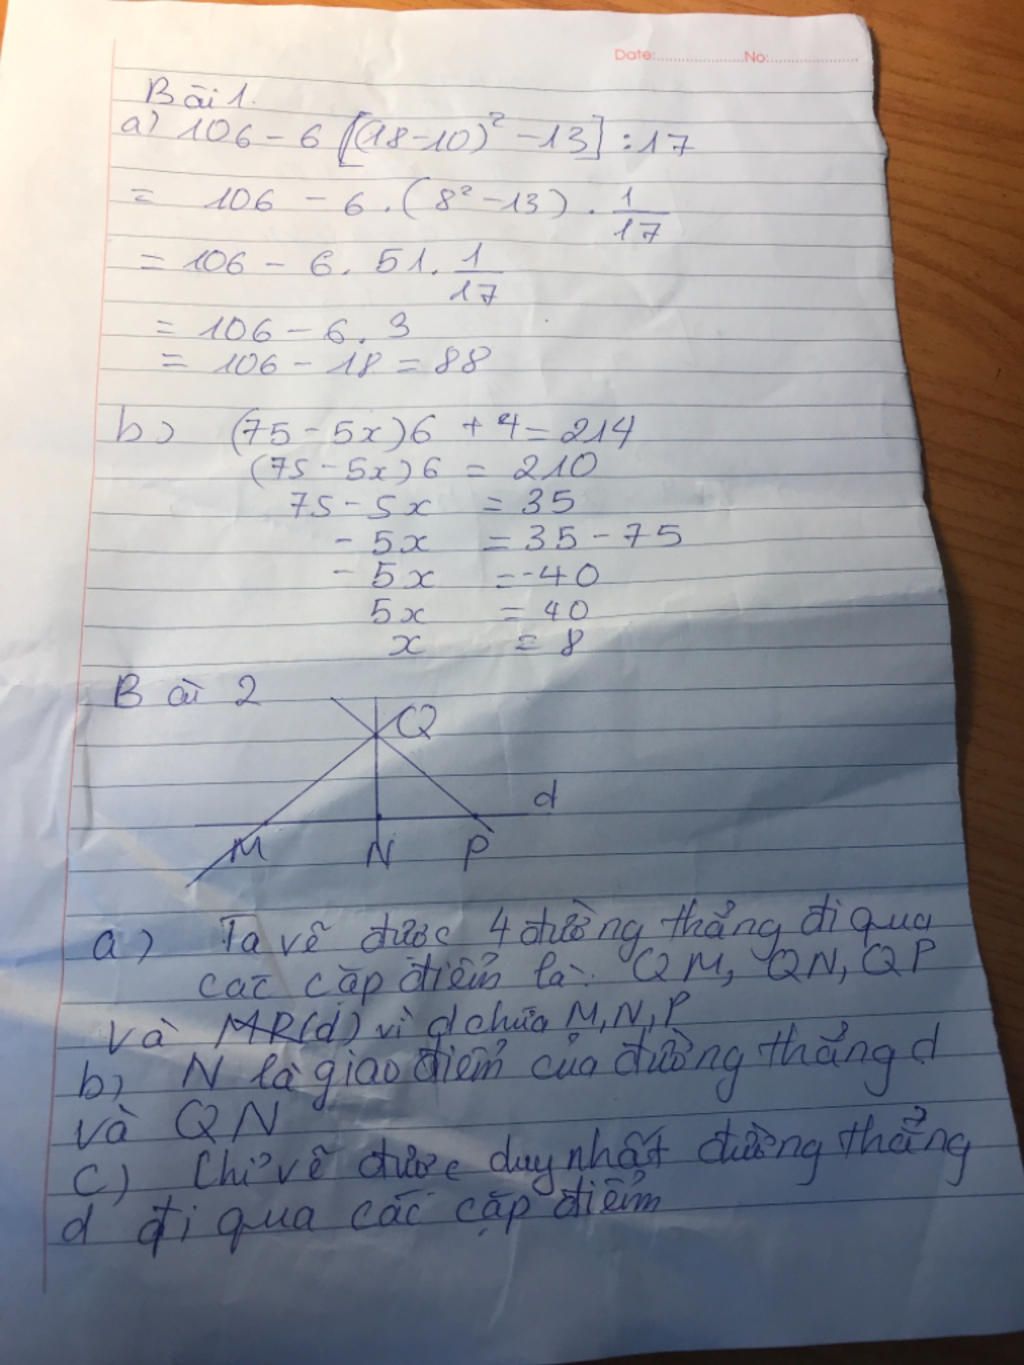 Date:..................No:...................
Bài 1.
a) 106 - 6 [(18-10)² - 13] : 17
= 106 - 6 . (8² - 13) . 1/17
= 106 - 6 . 51 . 1/17
= 106 - 6 . 3
= 106 - 18 = 88
b) (75 - 5x)6 + 4 = 214
(75 - 5x)6 = 210
75 - 5x = 35
- 5x = 35 - 75
- 5x = -40
5x = 40
x = 8
Bài 2
Q
d
M N P
a) Ta vẽ được 4 đường thẳng đi qua
các cặp điểm là: QM, QN, QP
và MP(d) vì d chứa M, N, P
b) N là giao điểm của đường thẳng d
và QN
c) Chỉ vẽ được duy nhất đường thẳng
d đi qua các cặp điểm